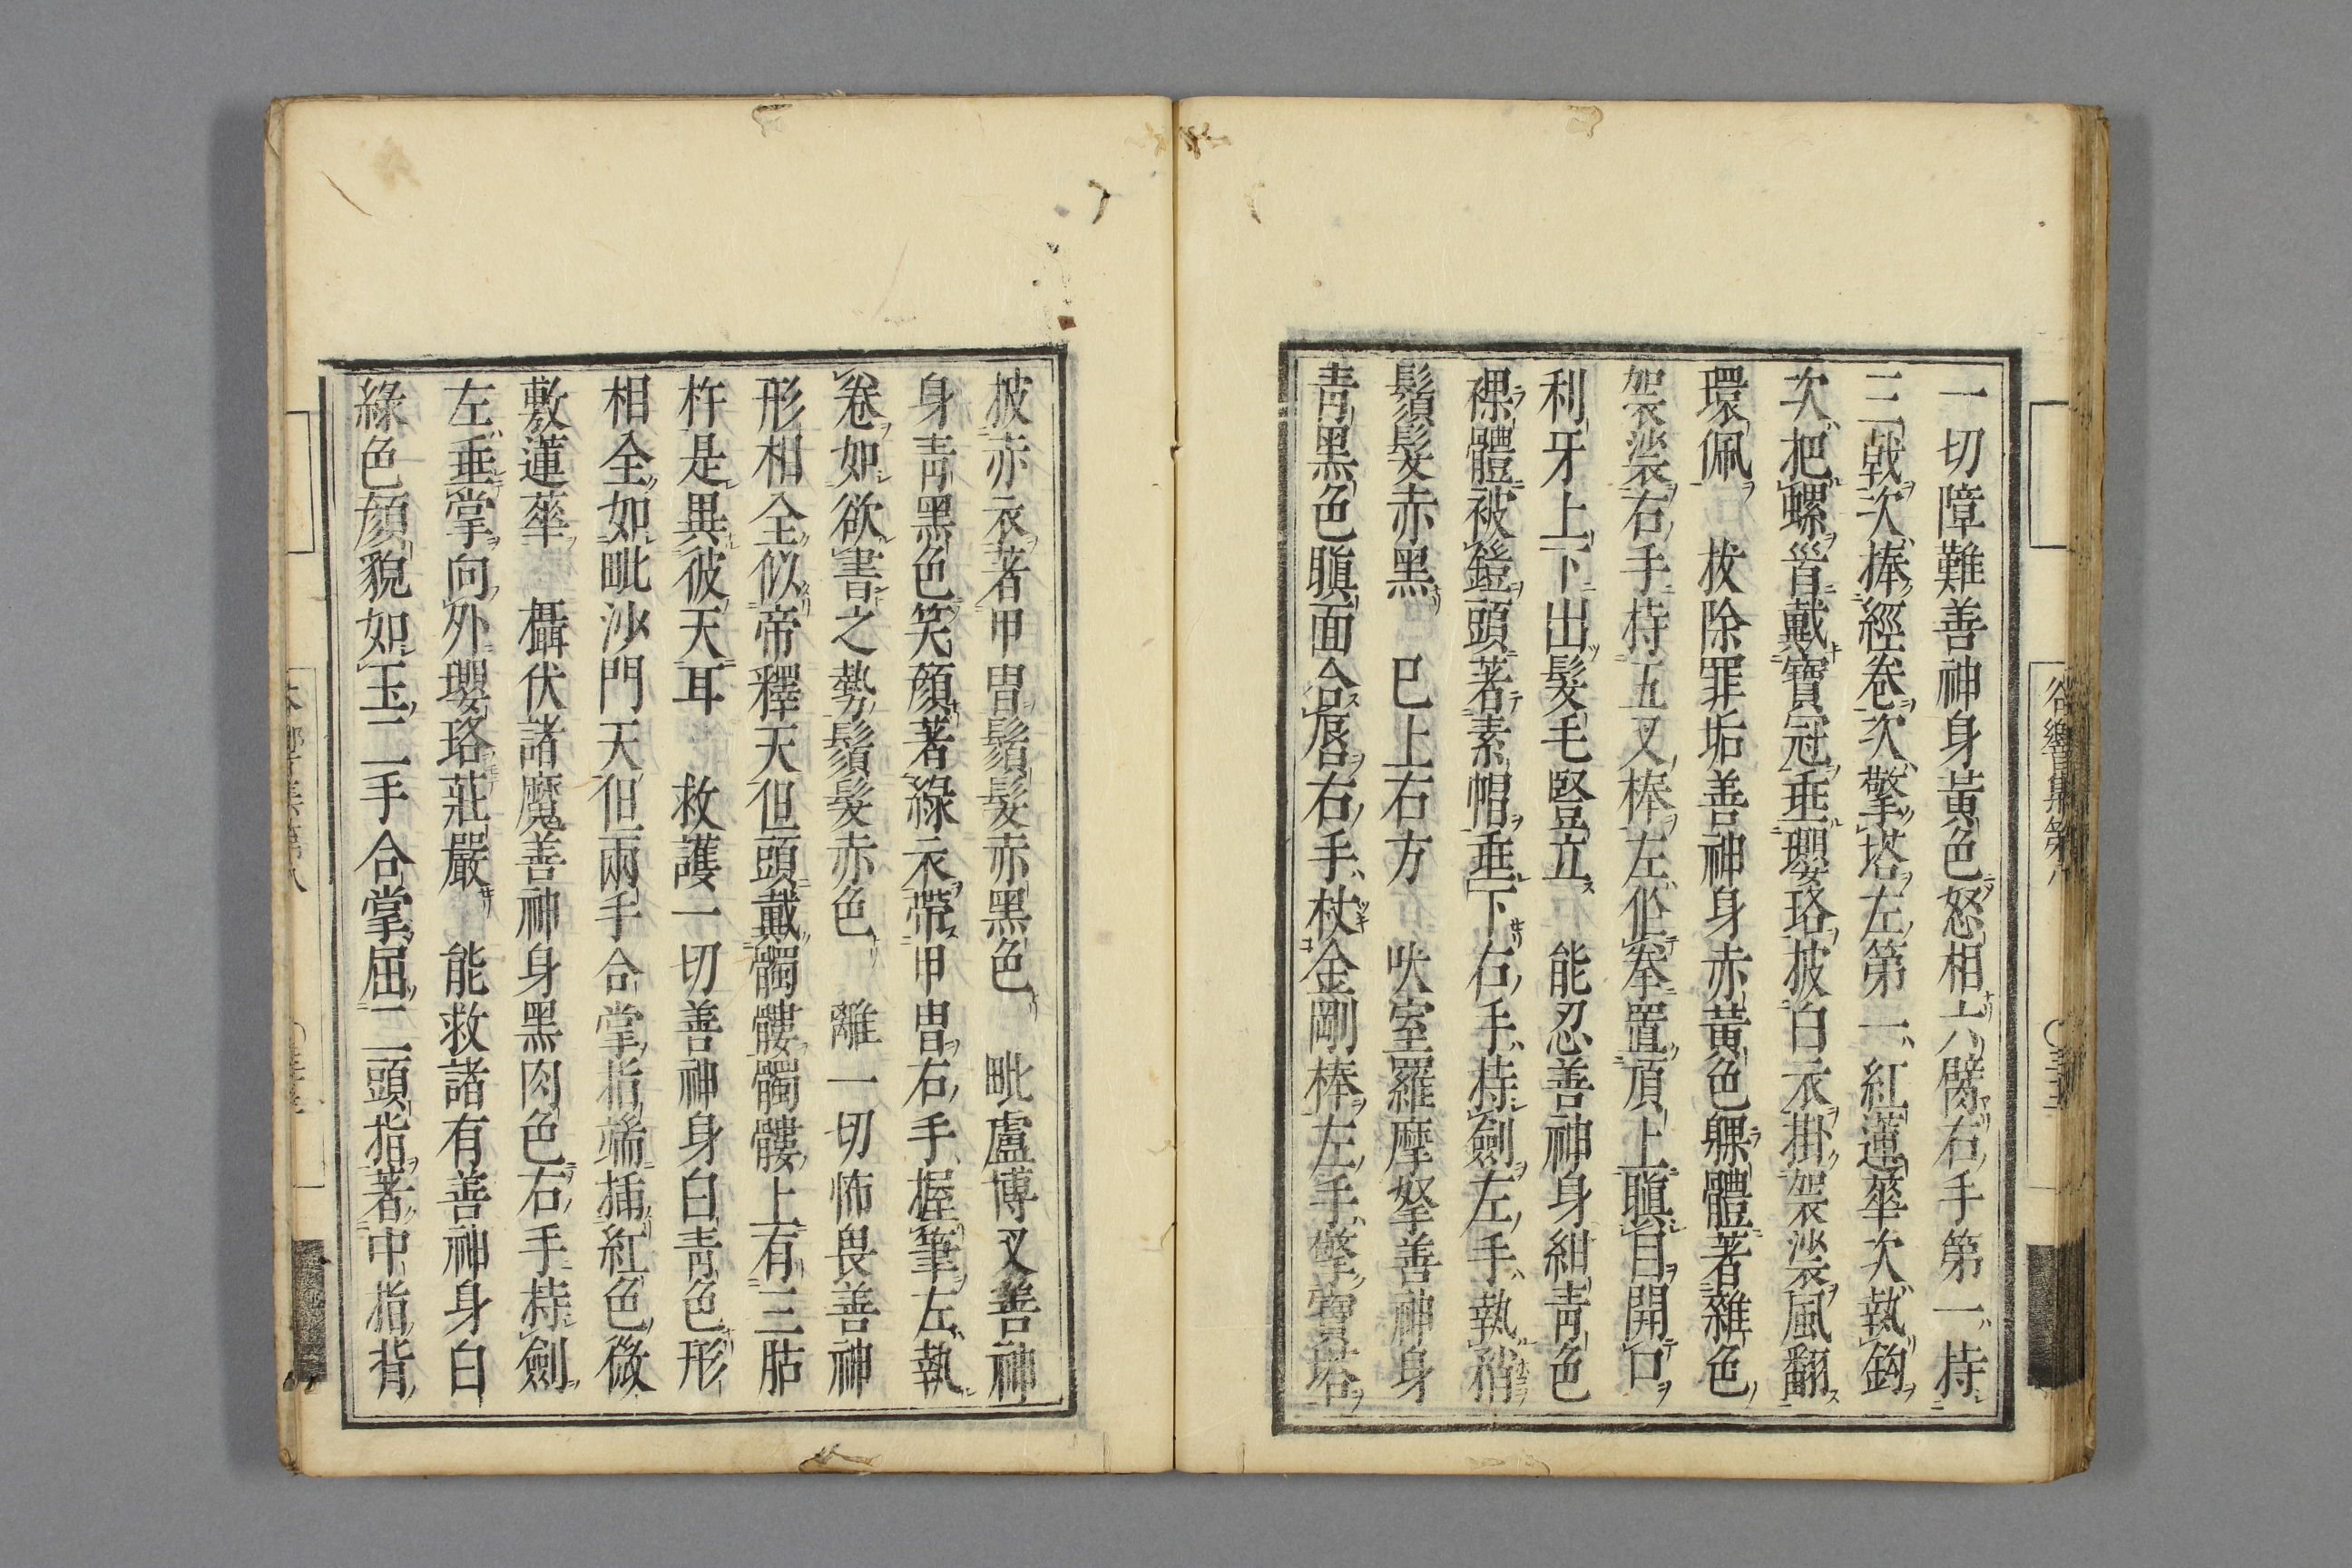 一切障難善神身黃色怒相六臂右手第一持
三戟次捧經卷次擎塔左第一紅蓮華次執鉤
次把螺首戴寶冠垂瓔珞披白衣掛袈裟風翻
環佩　拔除罪垢善神身赤黃色躶體著雜色
袈裟右手持五叉棒左作拳置頂上瞋目開口
利牙上下出髮毛豎立　能忍善神身紺青色
裸體被鎧頭著素帽垂下右手持劍左手執矟
鬚髮赤黑　巳上右方　吠室羅摩拏善神身
青黑色瞋面合脣右手杖金剛棒左手擎寶塔
披赤衣著甲冑鬚髮赤黑色　毗盧博叉善神
身青黑色笑顏著綠衣帶甲冑右手握筆左執
卷如欲書之勢鬚髮赤色　離一切怖畏善神
形相全似帝釋天但頭戴髑髏髑髏上有三股
杵是異彼天耳　救護一切善神身白青色形
相全如毗沙門天但兩手合掌指端插紅色微
敷蓮華　攝伏諸魔善神身黑肉色右手持劍
左垂掌向外瓔珞莊嚴　能救諸有善神身白
綠色顏貌如玉二手合掌屈二頭指著中指背
谷響集第八